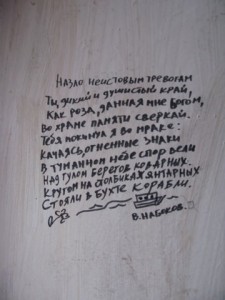 Назло неистовым тревогам
Ты, дикий и душистый край,
Как роза, данная мне Богом,
Во храме памяти сверкай.
Тебя покинул я во мраке:
Качаясь, огненные знаки
В туманном небе спор вели
Над гулом берегов коварных.
Кругом на столбиках янтарных
Стояли в бухте корабли.
В. Набоков.